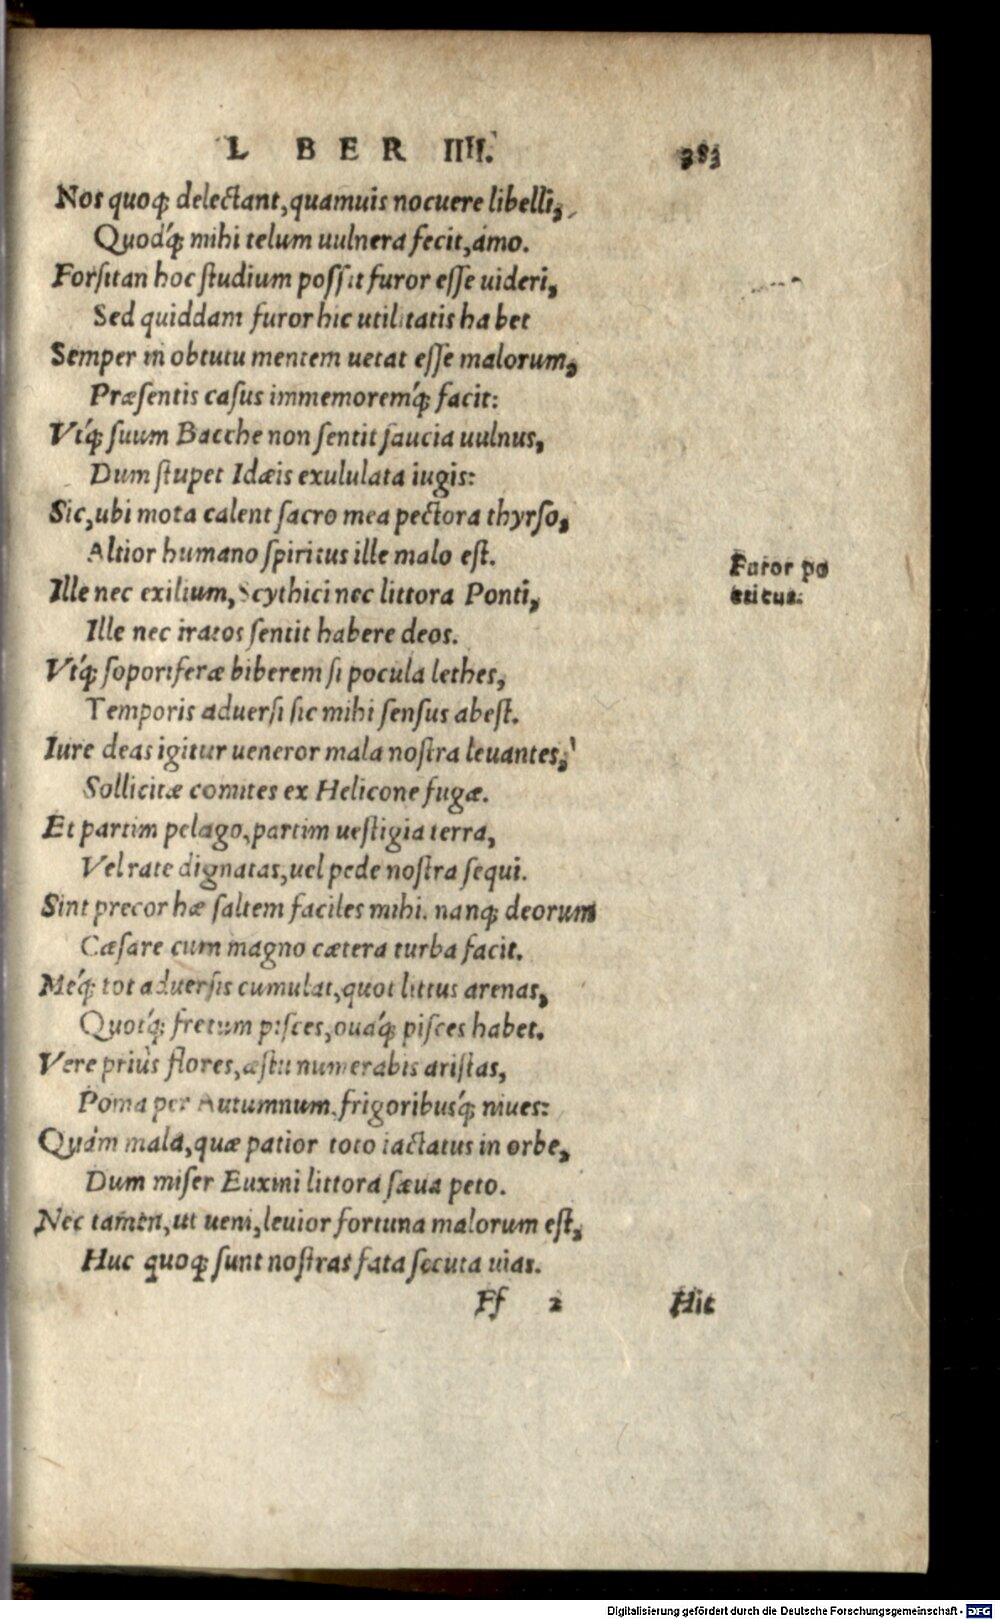 L BER IIII. 383
Nos quoq; delectant, quamuis nocuere libelli,
Quodq́; mihi telum uulnera fecit, amo.
Forsitan hoc studium possit furor esse uideri,
Sed quiddam furor hic utilitatis habet
Semper in obtutu mentem uetat esse malorum,
Præsentis casus immemoremq́; facit:
Vtq́; suum Bacche non sentit saucia uulnus,
Dum stupet Idæis exululata iugis:
Sic, ubi mota calent sacro mea pectora thyrso,
Altior humano spiritus ille malo est.
Furor po
eticus.
Ille nec exilium, Scythici nec littora Ponti,
Ille nec iratos sentit habere deos.
Vtq́; soporiferæ biberem si pocula lethes,
Temporis aduersi sic mihi sensus abest.
Iure deas igitur ueneror mala nostra leuantes,
Sollicitæ comites ex Helicone fugæ.
Et partim pelago, partim uestigia terra,
Vel rate dignatas, uel pede nostra sequi.
Sint precor hæ saltem faciles mihi. nanq; deorum
Cæsare cum magno cætera turba facit.
Meq́; tot aduersis cumulat, quot littus arenas,
Quotq́; fretum pisces, ouaq́; pisces habet.
Vere prius flores, æstu numerabis aristas,
Poma per Autumnum, frigoribusq́; niues:
Quàm mala, quæ patior toto iactatus in orbe,
Dum miser Euxini littora sæua peto.
Nec tamen, ut ueni, leuior fortuna malorum est,
Huc quoq; sunt nostras fata secuta uias.
Ff 2 Hic
Digitalisierung gefördert durch die Deutsche Forschungsgemeinschaft - DFG